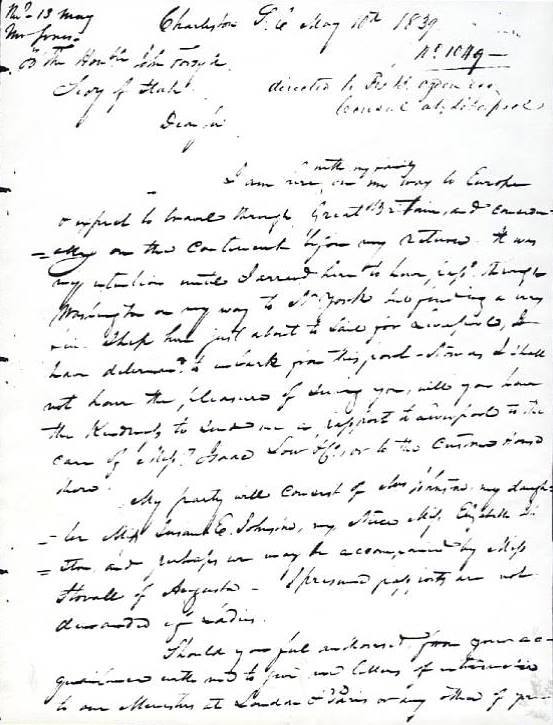 13 May
Charleston S. C. May 10th 1839
Mr Jones
No 1049
The Honble John Forsyth
Secy of State
directed to
Consul at Liverpool
Dear Sir
with my family
I am here, on my way to Europe
& expect to travel through Great Britain, and
on the Continent before my return. It was
my intention until I arrived here to have passd through
Washington on my way to N. York but finding a very
fine Ship here just about to Sail for Liverpool, I
have determined to embark from this port - & as I shall
not have the pleasure of seeing you, will you have
the Kindness to send me a passport to Liverpool to the
care of Messrs Isaac Low & Co, or to the Custom House
there.
My party will consist of Mrs Johnston, my daugh-
ter Miss E. Johnston, my Niece Miss Elizabeth
and perhaps we may be accompanied by Miss
Stovall of Augusta - I presume passports are not
demanded of Ladies.
Should you feel authorised from your ac-
quaintance with me to give me letters of introduction
to our Ministers at London & Paris or any other of